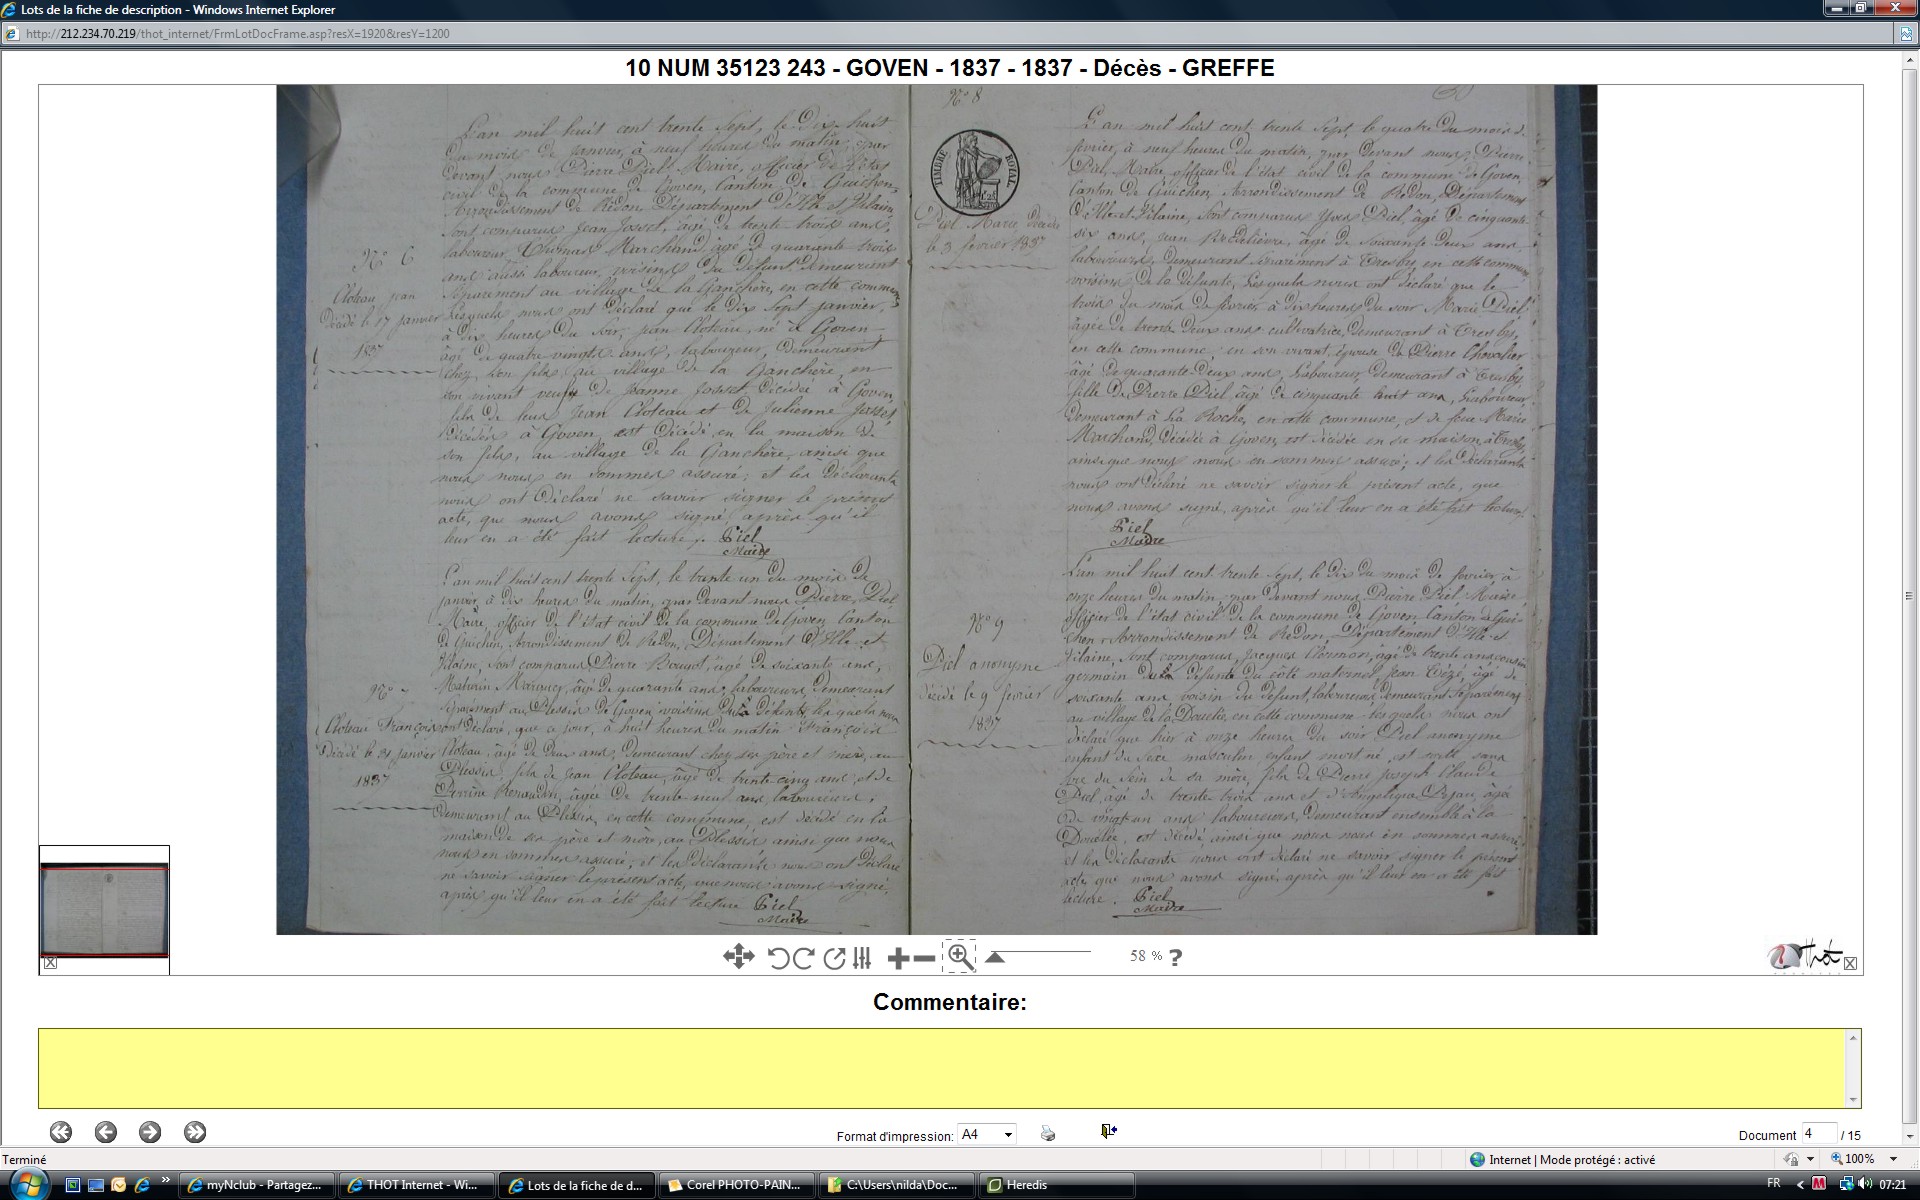 Lots de la fiche de description - Windows Internet Explorer
http://212.234.70.219/thot_internet/FrmLotDocFrame.asp?resX=1920&resY=1200
10 NUM 35123 243 - GOVEN - 1837 - 1837 - Décès - GREFFE
L'an mil huit cent trente Sept, le dix huit
du mois de Janvier, à neuf heures du matin, par
devant nous Pierre Piel Maire, officier de l'état
civil de la commune de Goven, Canton de Guichen,
Arrondissement de Redon, Département d'Ille et Vilaine,
Sont comparus Jean Josset, âgé de trente trois ans,
laboureur, Thomas Marchand, âgé de quarante trois
ans aussi laboureur, voisins du défunt demeurant
Séparément au village de la Ganchère, en cette commune,
Lesquels nous ont déclaré que le dix Sept janvier,
à dix heures du soir, jean Cloteau, né à Goven
âgé de quatre vingts ans, laboureur, demeurant
chez son fils, au village de la Ganchère, en
son vivant veuf de Jeanne Josset, décédée à Goven,
fils de feus Jean Cloteau et de Julienne Josset,
décédés à Goven, est décédé en la maison de
son fils, au village de la Ganchère, ainsi que
nous nous en sommes assuré; et les déclarants
nous ont déclaré ne savoir signer le présent
acte, que nous avons signé, après qu'il
leur en a été fait lecture.
Piel
Maire
N° 6
Cloteau jean
décédé le 17 janvier
1837
L'an mil huit cent trente Sept, le trente un du mois de
janvier à dix heures du matin, par devant nous Pierre Piel
Maire, officier de l'état civil de la commune de Goven Canton
de Guichen, Arrondissement de Redon, Département d'Ille et
Vilaine, Sont comparus Pierre, âgé de soixante ans,
Mathurin, âgé de quarante ans, laboureurs, demeurant
Séparément au Plessix de Goven, voisins, lesquels nous
ont déclaré, que ce jour, à huit heures du matin François
Cloteau, âgé de deux ans, demeurant chez ses père et mère, au
Plessix, fils de Jean Cloteau, âgé de trente cinq ans et de
Perrine Renaudin, âgée de trente neuf ans, laboureurs,
demeurant au Plessix, en cette commune, est décédé en la
maison de ses père et mère, au Plessix ainsi que nous
nous en sommes assuré; et les déclarants nous ont déclaré
ne savoir signer le présent acte, que nous avons signé,
après qu'il leur en a été fait lecture
Piel
Maire
N°
Cloteau François
Décédé le 31 janvier
1837
N° 8
TIMBRE ROYAL
Piel Marie décédée
le 3 fevrier 1837
L'an mil huit cent trente Sept, le quatre du mois de
fevrier, à neuf heures du matin, par devant nous, Pierre
Piel, Maire, officier de l'état civil de la commune de Goven,
Canton de Guichen, Arrondissement de Redon, Département
d'Ille et Vilaine, Sont comparus Yves Piel, âgé de cinquante
six ans, jean, âgé de Soixante deux ans
laboureurs, demeurant séparément à Tresby, en cette commune
voisins de la défunte, Lesquels nous ont déclaré que le
trois du mois de fevrier, à dix heures du soir Marie Piel
âgée de trente deux ans cultivatrice, demeurant à Tresby,
en cette commune, en son vivant, épouse de Pierre Chevalier
âgé de quarante-deux ans, Laboureur, demeurant à Tresby,
fille de Pierre Piel, âgé de cinquante huit ans, Laboureur,
demeurant à La Roche, en cette commune, et de feue Marie
Marchand, décédée à Goven, est décédée en sa maison, à Tresby,
ainsi que nous nous en sommes assuré; et les déclarants
nous ont déclaré ne savoir signer le présent acte, que
nous avons signé, après qu'il leur en a été fait lecture.
Piel
Maire
N° 9
Piel anonyme
décédé le 9 fevrier
1837
L'an mil huit cent trente Sept, le dix du mois de fevrier à
onze heures du matin, par devant nous Pierre Piel Maire,
officier de l'état civil de la commune de Goven Canton de Gui-
chen Arrondissement de Redon, Département d'Ille et
Vilaine, Sont comparus, Jacques, âgé de trente ans cousin
germain du côté maternel, Jean, âgé de
soixante ans voisin du défunt, laboureurs demeurant Séparément
au village de la Douetée, en cette commune lesquels nous ont
déclaré que hier à onze heures du soir Piel anonyme
enfant du Sexe masculin enfant mort né, est sorti sans
vie du Sein de sa mère, fils de Pierre joseph Claude
Piel, âgé de trente trois ans et d'Angélique, âgée
de vingt un ans laboureurs, demeurant ensemble à la
Douetée, est décédé, ainsi que nous nous en sommes assuré
et les déclarants nous ont déclaré ne savoir signer le présent
acte, que nous avons signé après qu'il leur en a été fait
lecture.
Piel
Maire
58 % ?
Thot
Commentaire:
Format d'impression: A4
Document 4 / 15
Terminé
Internet | Mode protégé : activé
100%
myNclub - Partagez...
THOT Internet - Wi...
Lots de la fiche de d...
Corel PHOTO-PAIN...
C:\Users\nilda\Doc...
Heredis
FR
07:21